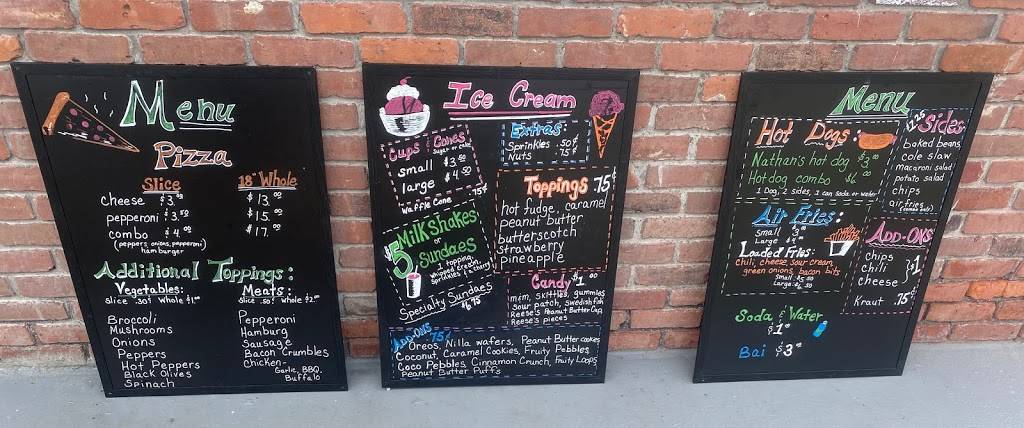 Menu
Pizza
Slice 18" Whole
Cheese $3.00 $13.00
pepperoni $3.50 $15.00
combo $4.00 $17.00
(peppers, onions, pepperoni)
hamburger
Additional Toppings:
Vegetables: Meats:
slice .50¢ whole $1.00 slice .50¢ whole $2.00
Broccoli Pepperoni
Mushrooms Hamburg
Onions Sausage
Peppers Bacon Crumbles
Hot Peppers Chicken-
Black Olives Garlic, BBQ,
Spinach Buffalo
Ice Cream
Cups & Cones
Sugar or cake
small $3.50
large $4.50
Waffle Cone .75¢
Extras:
Sprinkles .50¢
Nuts .75¢
Toppings .75¢
hot fudge, caramel
peanut butter
butterscotch
strawberry
pineapple
$5 Milkshakes
or
Sundaes
1 topping,
whipped cream,
sprinkles & cherry
Specialty Sundaes
$6.75
Candy $1.00
M&M, Skittles, gummies
Sour patch, Swedish fish
Reese's Peanut Butter Cup,
Reese's pieces
Add-ons .75¢
Oreos, Nilla wafers, Peanut Butter cookies
Coconut, Caramel Cookies, Fruity Pebbles
Coco Pebbles, Cinnamon Crunch, Fruity Loops
Peanut Butter Puffs
Menu
Hot Dogs:
Nathan's hot dog $3.00
Hotdog combo $6.00
1 Dog, 2 sides, 1 can soda or water
$1.25 Sides
baked beans
cole slaw
macaroni salad
potato salad
chips
air fries
Air Fries:
Small $3.00
Large $4.00
Loaded Fries:
chili, cheese, sour cream,
green onions, bacon bits
Small
Large
Add-ons
chips
chili
cheese
$1
Kraut .75¢
Soda & Water
$1.00
Bai $3.00